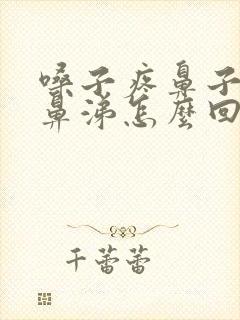 嗓子疼鼻子
鼻涕怎麼回
千蕾蕾